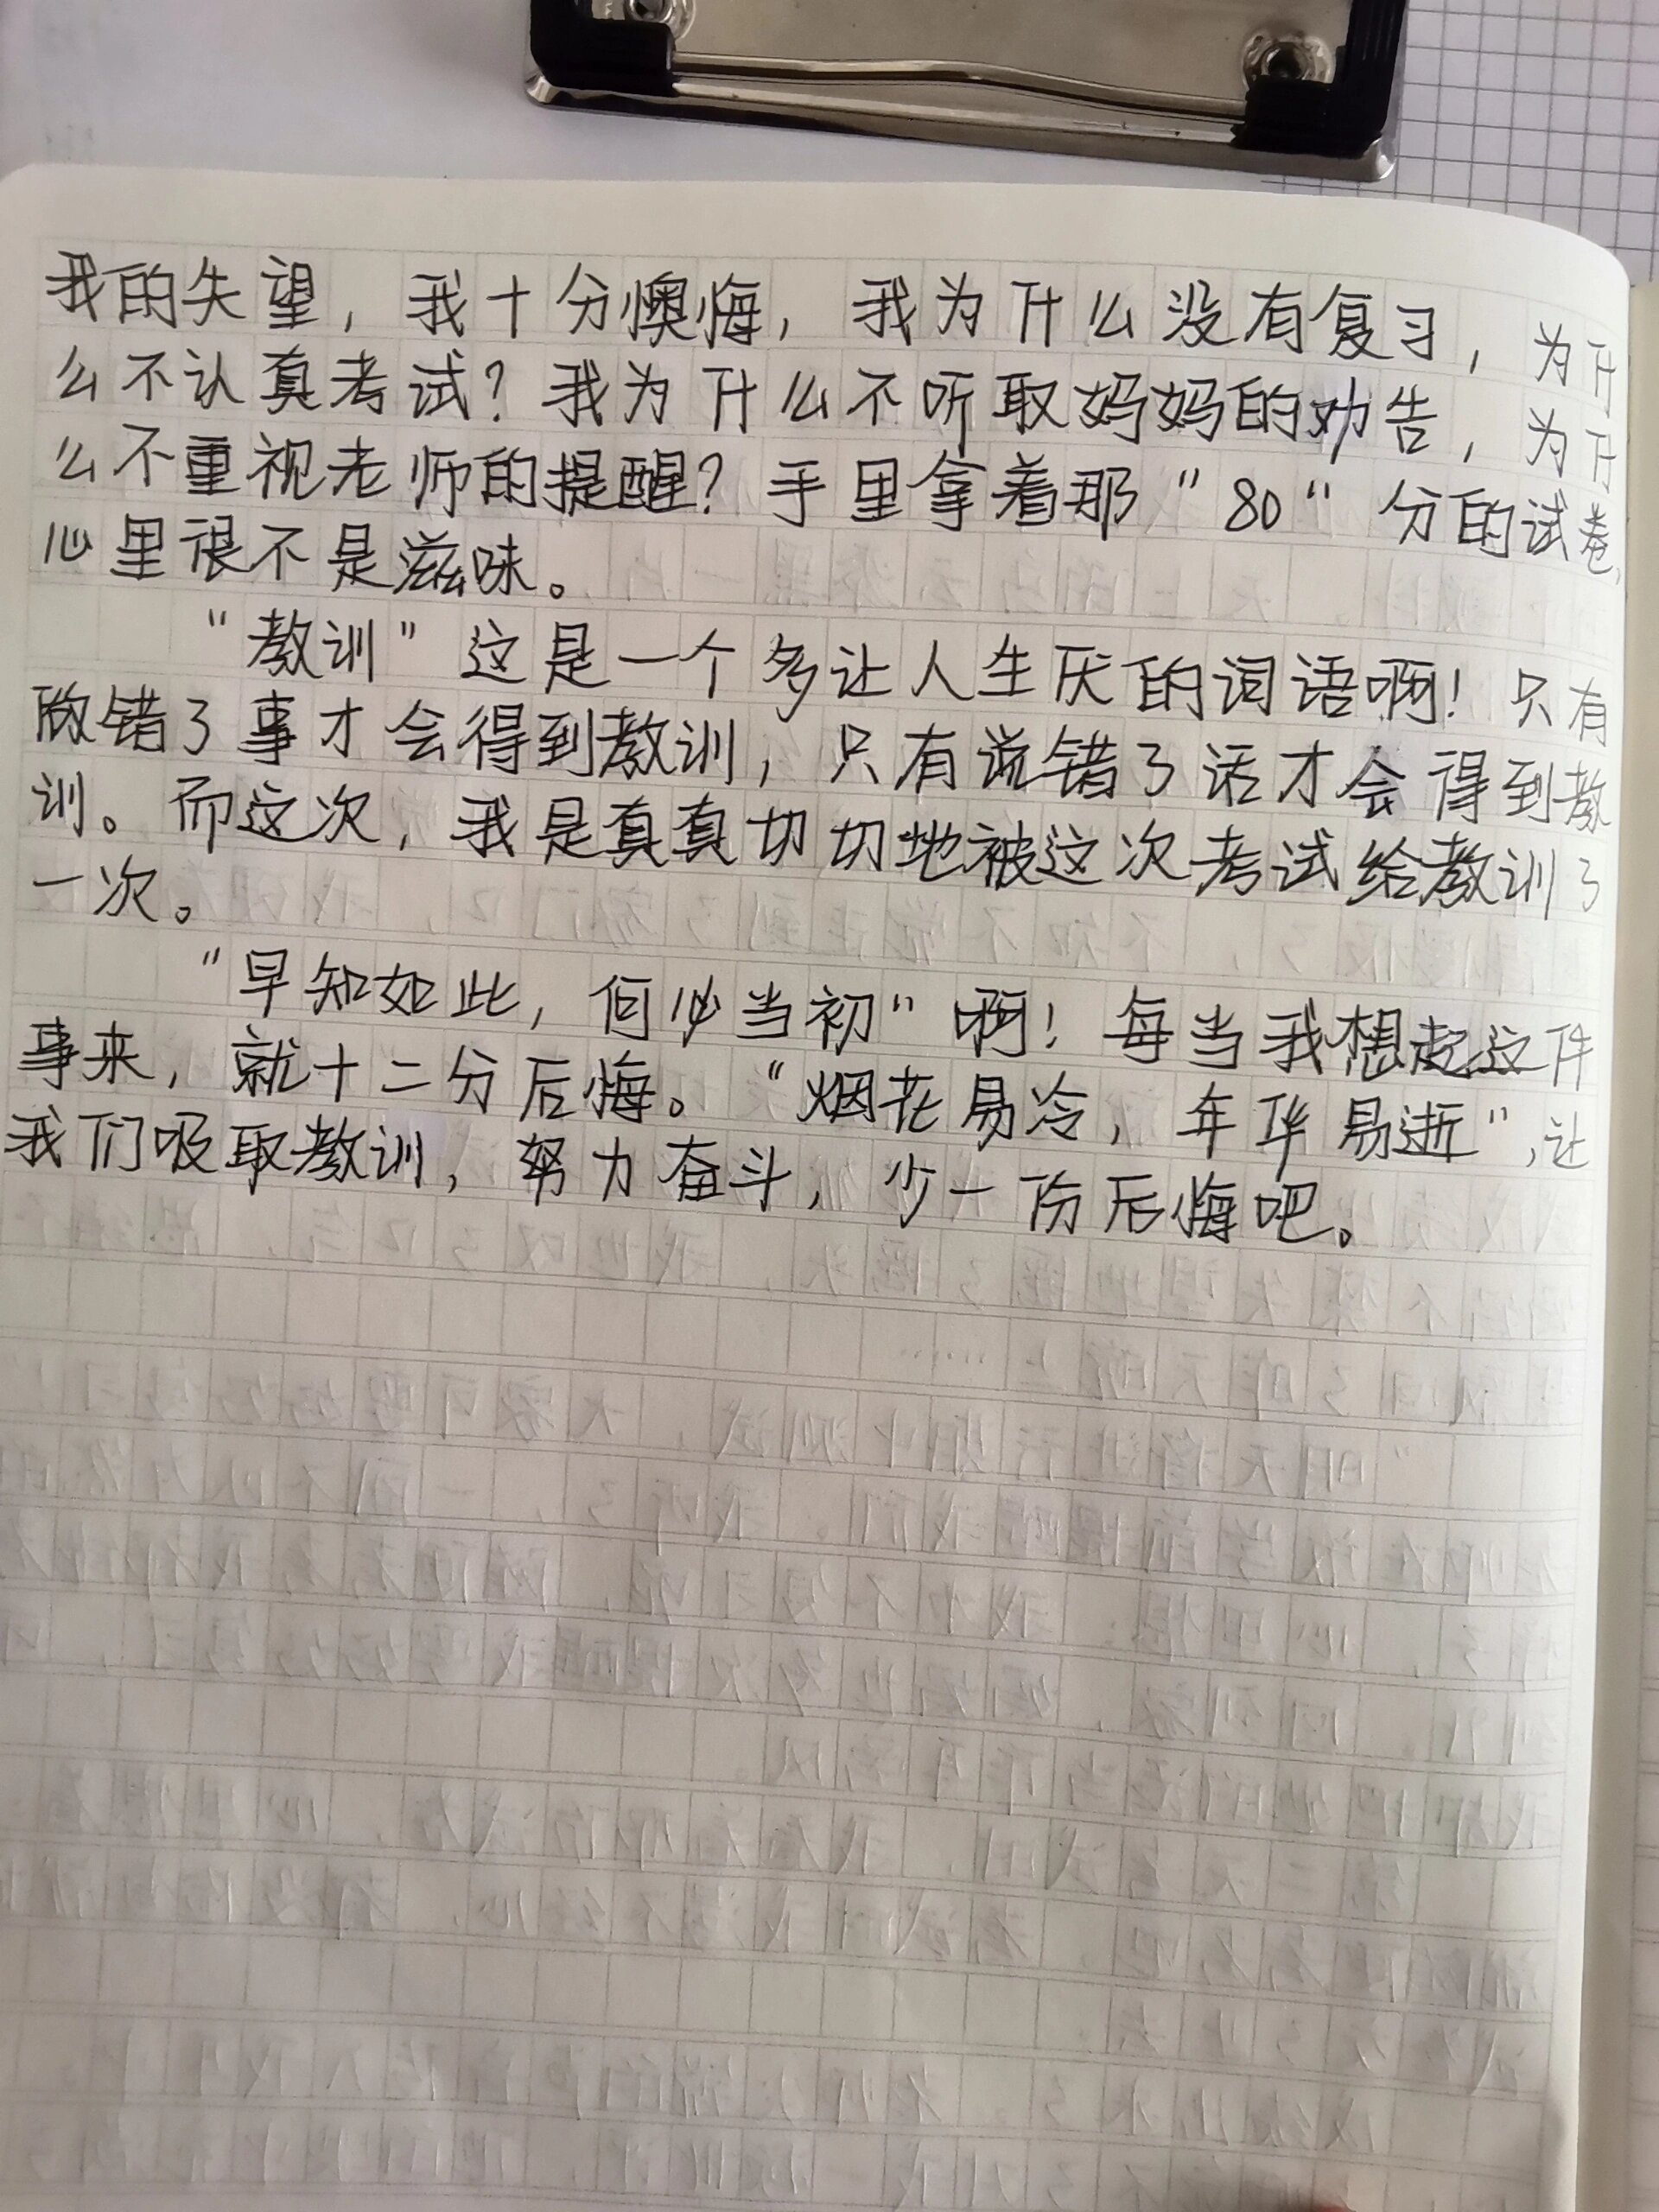 我的失望，我十分懊悔，我为什么没有复习，为什
么不认真考试？我为什么不听取妈妈的劝告，为什
么不重视老师的提醒？手里拿着那“80”分的试卷，
心里很不是滋味。
“教训”这是一个多让人生厌的词语啊！只有
做错了事才会得到教训，只有说错了话才会得到教
训。而这次，我是真真切切地被这次考试给教训了
一次。
“早知如此，何必当初”啊！每当我想起这件
事来，就十二分后悔。“烟花易冷，年华易逝”，让
我们吸取教训，努力奋斗，少一份后悔吧。